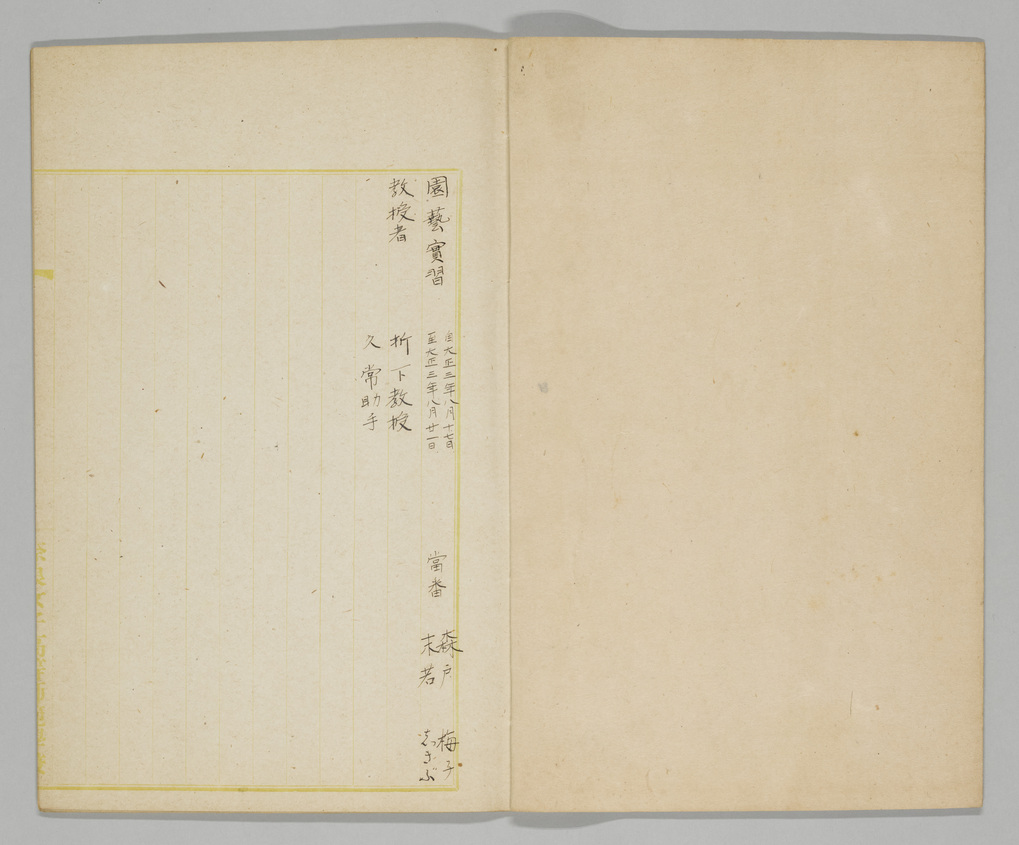 園藝實習
自大正三年八月十七日
至大正三年八月廿一日
當番
森戸 梅子
末若
教授者
折下教授
久常助手